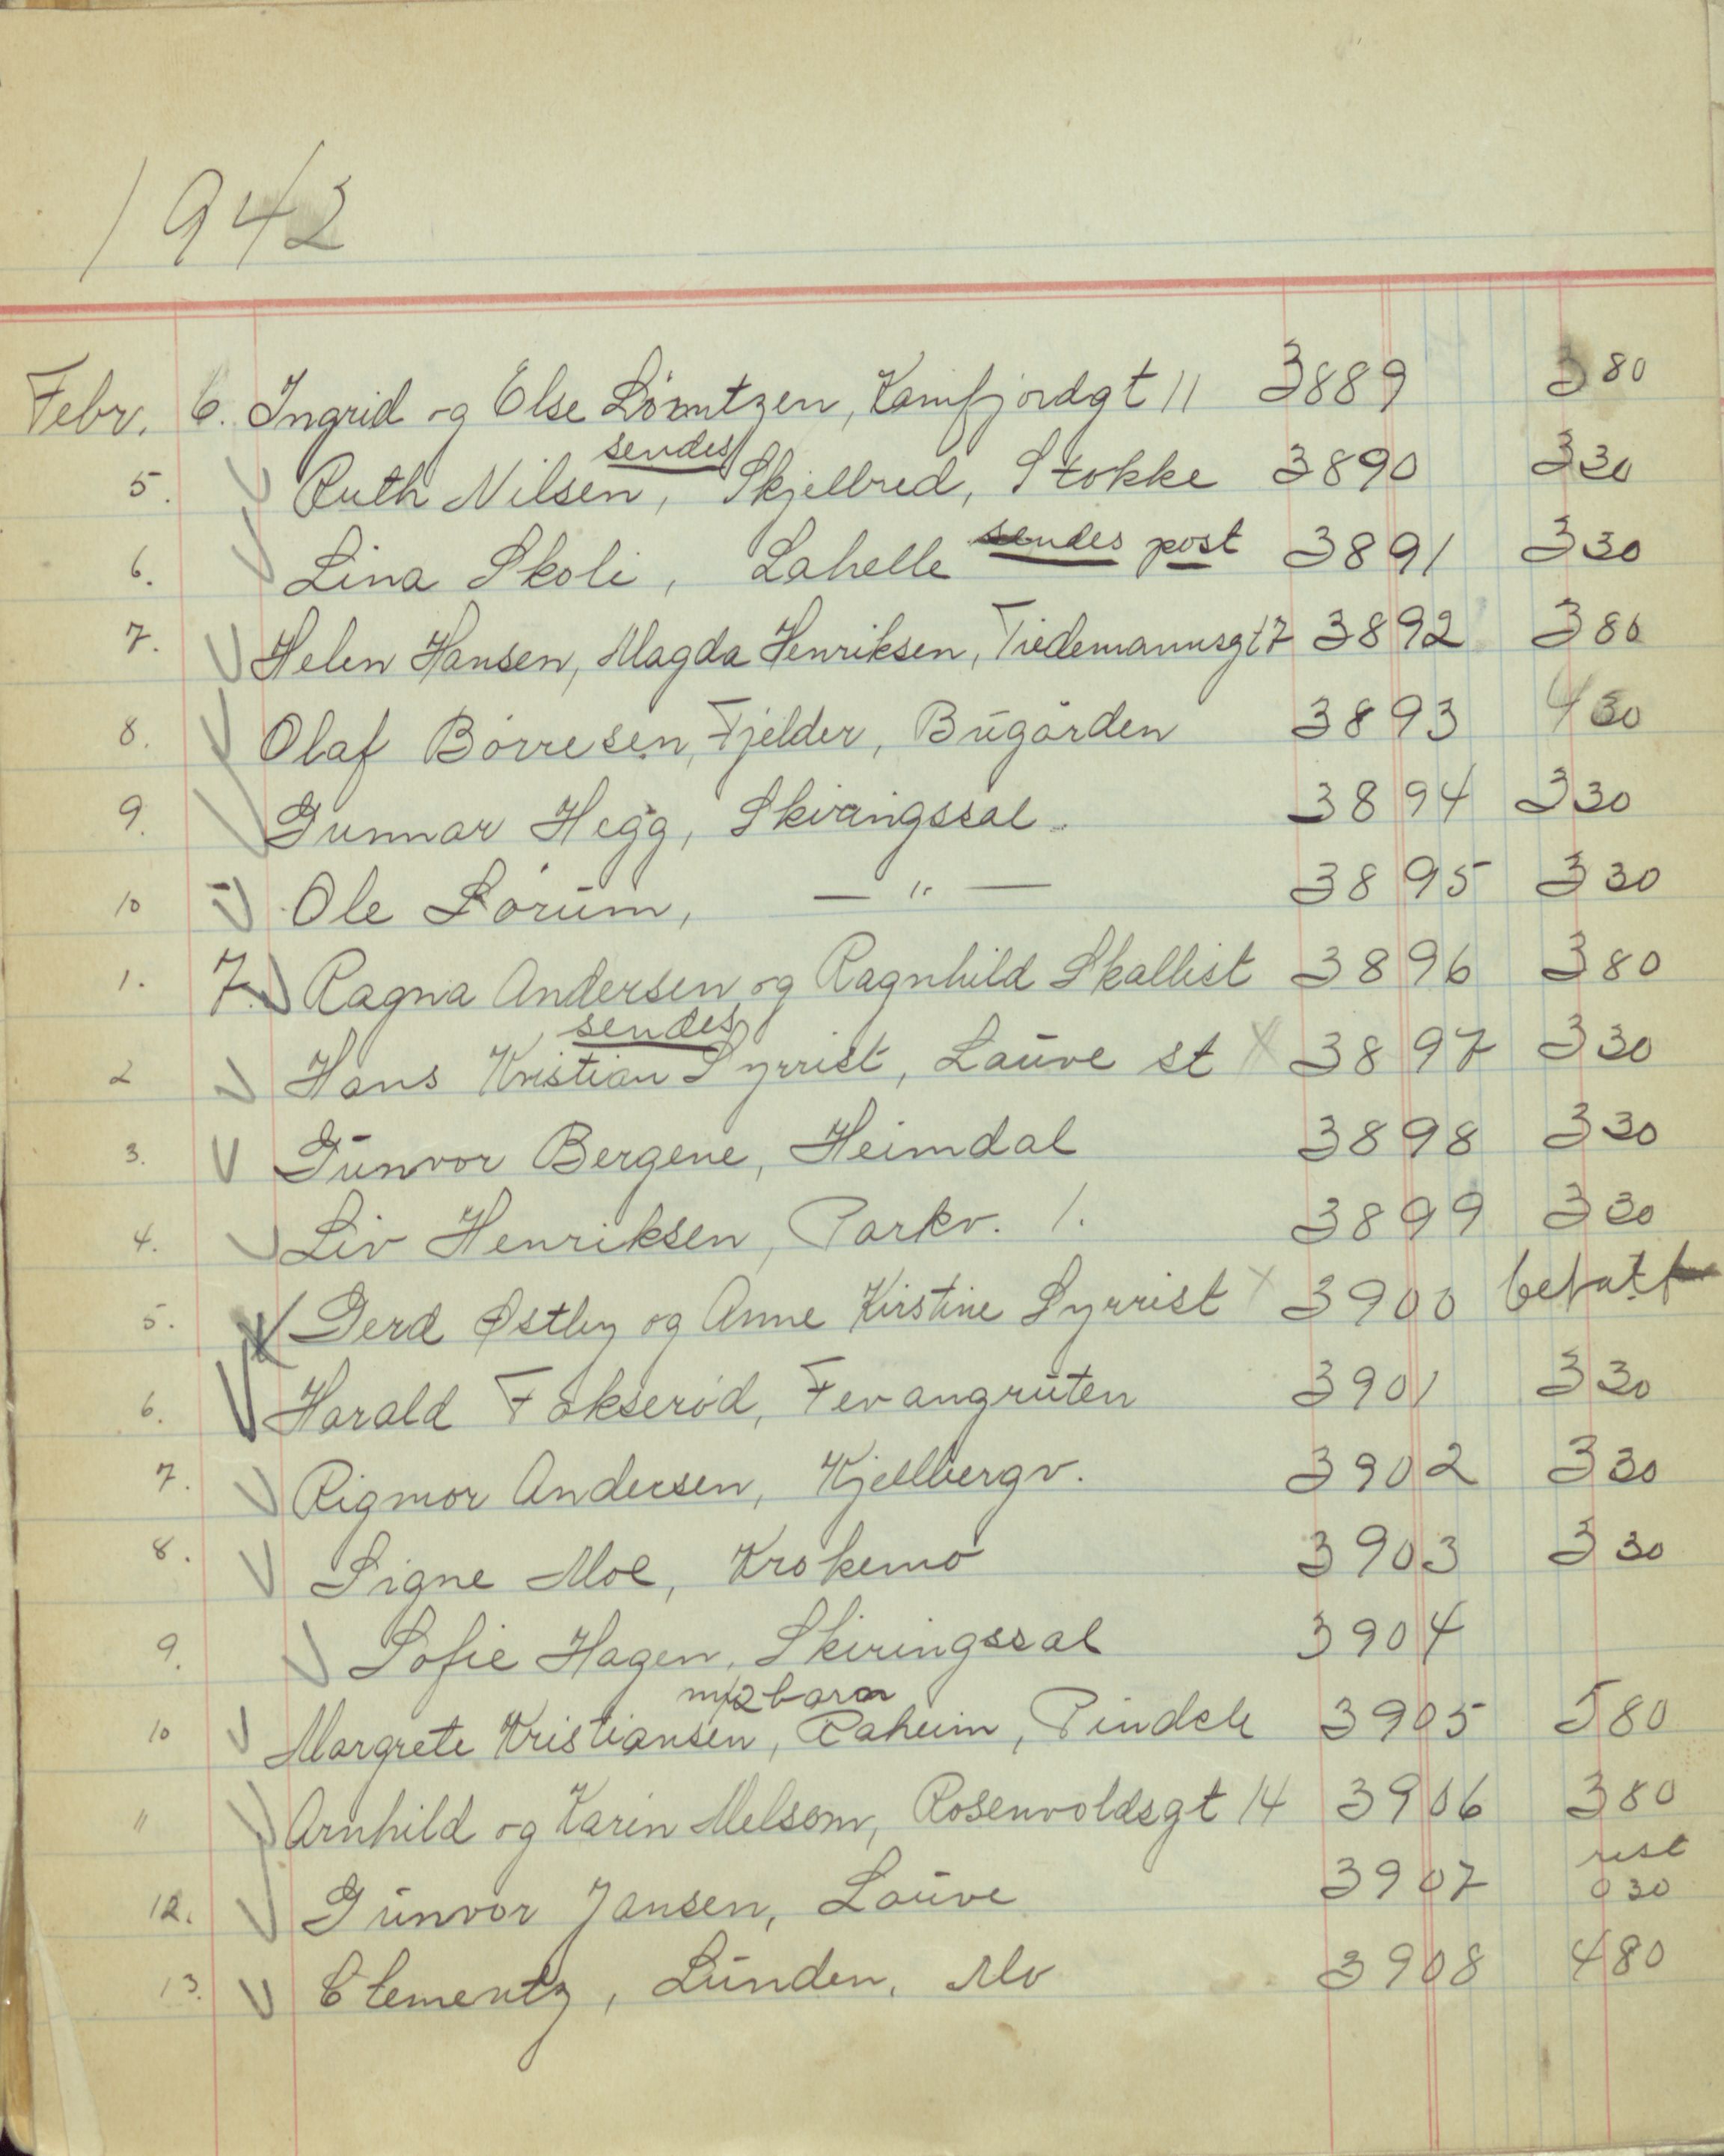 1942
Febr. 6. Ingrid og Else Lorentzen, Kamfjordgt 11 3889 3 80
sendes
5. Ruth Nilsen, Skjelbred, Stokke 3890 3 30
6. Lina Skoli, Lahelle sendes post 3891 3 30
7. Helen Hansen, Magda Henriksen, Tiedemannsgt 7 3892 3 80
8. Olaf Börresen, Fjelder, Bugården 3893 4 30
9. Gunnar Hegg, Skiringssal 3894 3 30
10 Ole Sörum, — " — 3895 3 30
1. 7. Ragna Andersen og Ragnhild Skallist 3896 3 80
sendes
2 Hans Kristian Syrrist, Lauve st X 3897 3 30
3. Gunvor Bergene, Heimdal 3898 3 30
4. Liv Henriksen, Parkv. 1. 3899 3 30
5. Gerd Østby og Anne Kirstine Syrrist X 3900 betalt
6. Harald Fokseröd, Fevangruten 3901 3 30
7. Rigmor Andersen, Kjellbergv. 3902 3 30
8. Signe Moe, Krokemo 3903 3 30
9. Sofie Hagen, Skiringssal 3904
m/2 barn
10 Margrete Kristiansen, Raheim, Pindsle 3905 5 80
11 Arnhild og Karin Melsom, Rosenvoldsgt 14 3906 3 80
rest
12. Gunvor Jansen, Lauve 3907 0 30
13. Clementz, Lunden, Mo 3908 4 80